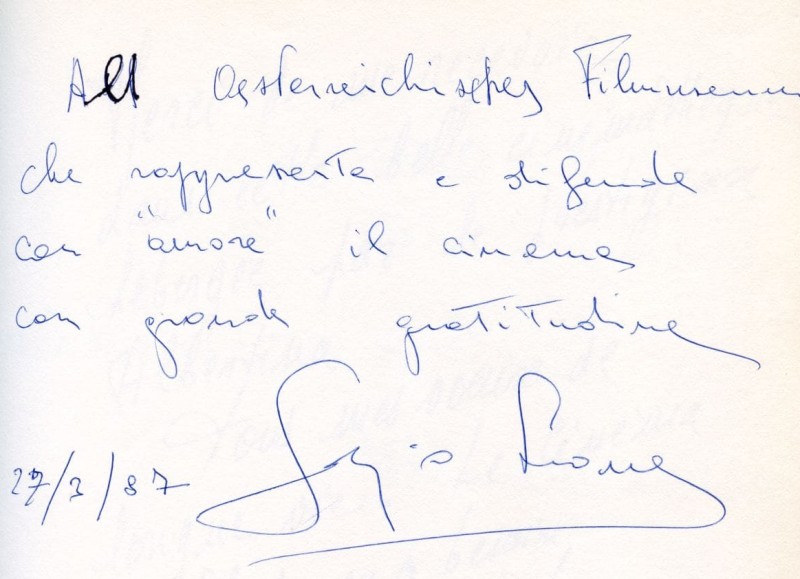 All Oesterreichisches Filmmuseum
che rappresenta e difende
con "amore" il cinema
con grande gratitudine
Sergio Leone
27/3/87